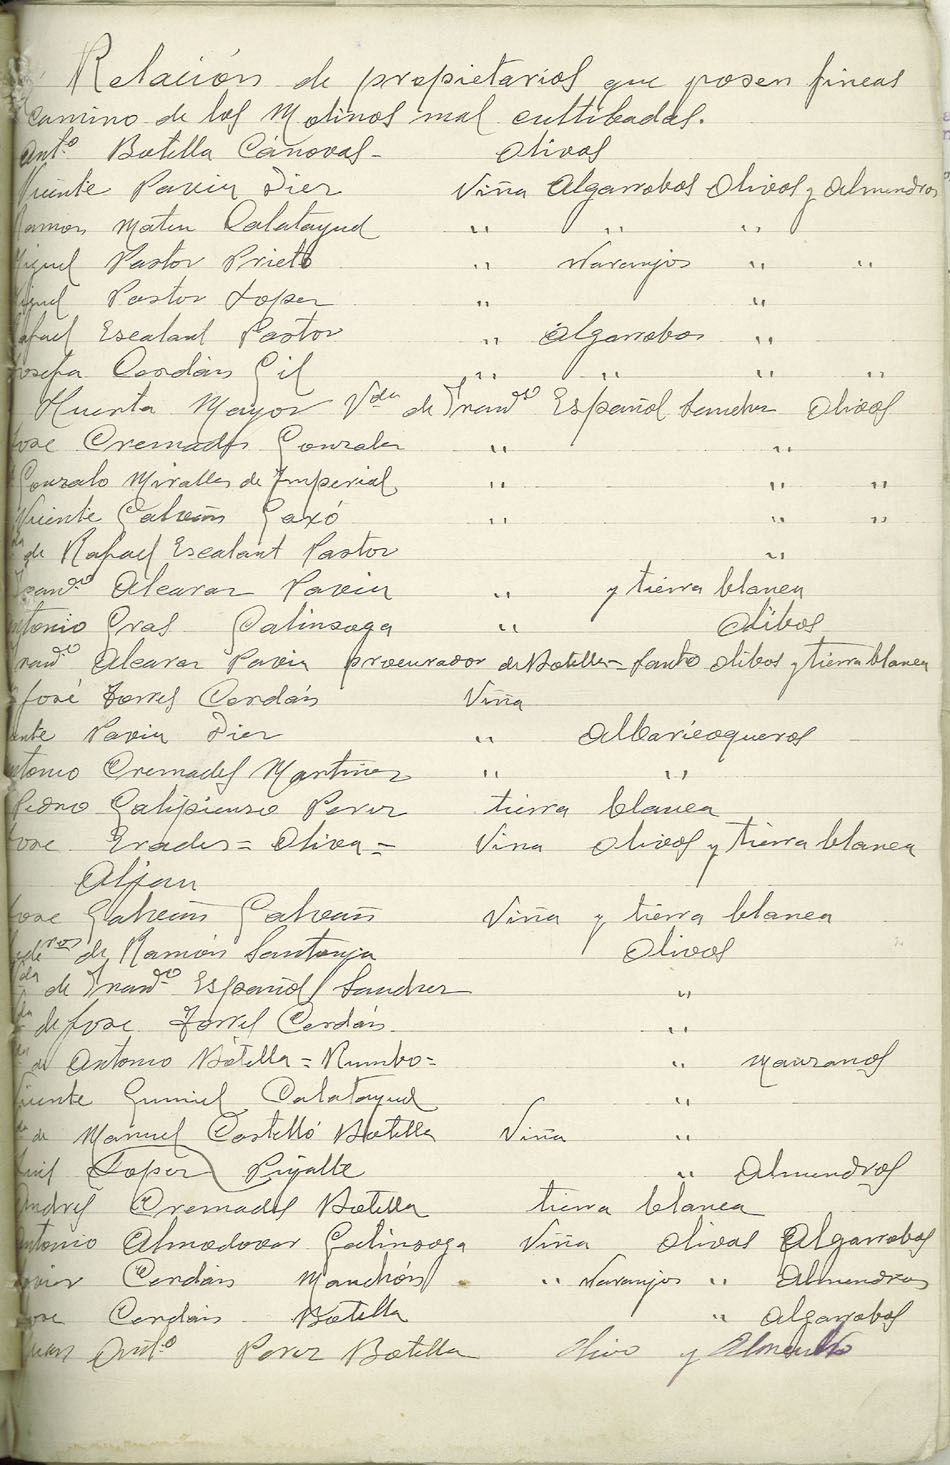 Relación de propietarios que posen fincas
camino de los Molinos mal cultibadas.
Antº Botella Cánovas- Olivos
Vicente Pavia Dier Viña Algarrobos Olivos y Almendros
Ramon Mateu Calatayud " " "
Miguel Pastor Prieto " Naranjos " "
Miguel Pastor Lopez " "
Rafael Escalant Pastor " Algarrobos "
Josefa Cerdán Gil " " " "
Huerta Mayor Vda de Francº Español Sanchez Olivos
Jose Cremades Gonzalez " "
Gonzalo Miralles de Imperial " " "
Vicente Galvañ Gaxó " " "
Vda de Rafael Escalant Pastor "
Francº Alcaraz Pavia " y tierra blanca
Antonio Gras Galinsoga " Olibos
Francº Alcaraz Pavia procurador de Botella= Santo olibos y tierra blanca
José Torres Cerdán Viña
Vicente Pavia Dier " Albaricoqueros
Antonio Cremades Martinez " "
Pedro Galipienso Perez tierra blanca
Jose Erades= Oliva= Vina olivos y tierra blanca
Aljau
Jose Galvañ Galvañ Viña y tierra blanca
Rederos de Ramón Santonja Olivos
Vda de Francº Español Sanchez "
Vda de Jose Torres Cerdán. "
Vda de Antonio Botella=Rumbo= " Manzanos
Vicente Gumiel Calatayud "
Vda de Manuel Castelló Botella Viña "
Luis Lopez Pigalte " Almendros
Andres Cremades Botella tierra blanca
Antonio Almodovar Galinsoga Viña olivos Algarrobos
Javier Cerdán Manchón " Naranjos " Almendros
Jose Cerdán Botella " algarrobos
Juan Antº Perez Botella Olivo y Almendro